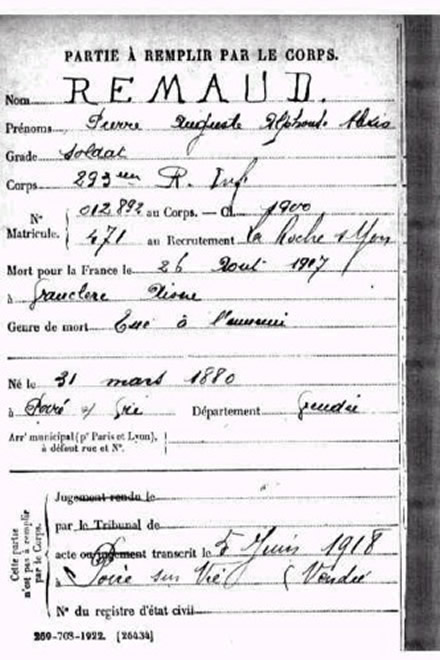 PARTIE À REMPLIR PAR LE CORPS.
Nom REMAUD.
Prénoms Pierre Auguste Alphons. Alexis
Grade Soldat
Corps 293 em R. Inf.
N° Matricule. 012892 au Corps. — Cl. 1900
471 au Recrutement La Roche s/Yon
Mort pour la France le 26 Aout 1917
à Aisne
Genre de mort Tué à l'ennemi
Né le 31 mars 1880
à Poiré s/ Vie Département Vendée
Arrᵗ municipal (pʳ Paris et Lyon), à défaut rue et N°.
Cette partie n'est pas à remplir par le Corps.
Jugement rendu le
par le Tribunal de
acte ou jugement transcrit le 5 Juin 1918
à Poiré sur Vie (Vendée
N° du registre d'état civil
269-708-1922. [26434]